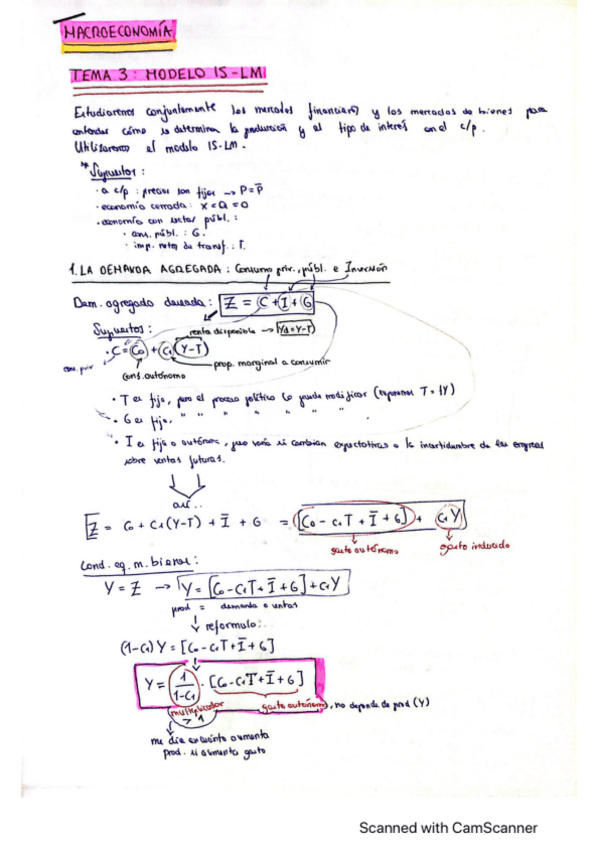 MACROECONOMÍA
TEMA 3: MODELO IS-LM
Estudiaremos conjuntamente los mercados financieros y los mercados de bienes para
entender cómo se determinan la producción y el tipo de interés en el c/p.
Utilizaremos el modelo IS-LM.
* Supuestos:
· a c/p: precios son fijos → P = P̄
· economía cerrada: X = Q = 0
· economía con sector públ.:
· cons. públ.: G.
· imp. netos de transf.: T.
1. LA DEMANDA AGREGADA: Consumo priv., públ. e Inversión
Dem. agregada deseada: Z = C + I + G
Supuestos: renta disponible → Yd = Y-T
· C = C0 + C1 (Y-T)
cons. priv
prop. marginal a consumir
cons. autónomo
· T es fijo, pero el proceso político lo puede modificar (expresamos T = tY)
· G es fijo, " " " " " " "
· I es fija o autónoma, pero varía si cambian expectativas o la incertidumbre de las empresas
sobre ventas futuras.
así..
Z = C0 + C1 (Y-T) + Ī + G = [C0 - C1T + Ī + G] + C1Y
gasto autónomo gasto inducido
Cond. eq. m. bienes:
Y = Z → Y = [C0 - C1T + Ī + G] + C1Y
prod = demanda o ventas
↓ reformulo:
(1-C1) Y = [C0 - C1T + Ī + G]
Y = 1/(1-C1) · [C0 - C1T + Ī + G]
multiplicador > 1
gasto autónomo, no depende de prod (Y)
me dice en cuánto aumenta
prod. si aumenta gasto
Scanned with CamScanner